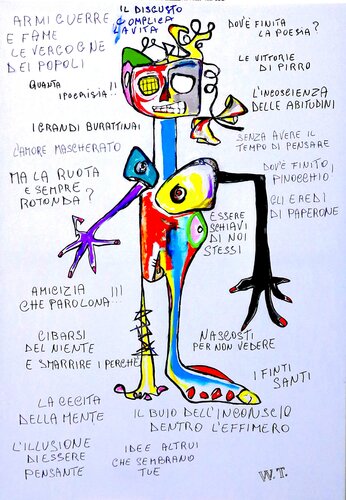 IL DISGUSTO
COMPLICA
LA VITA
ARMI GUERRE
E FAME
LE VERGOGNE
DEI POPOLI
DOV'È FINITA
LA POESIA?
QUANTA
IPOCRISIA!!
LE VITTORIE
DI PIRRO
I GRANDI BURATTINAI
L'INCOSCIENZA
DELLE ABITUDINI
L'AMORE MASCHERATO
SENZA AVERE IL
TEMPO DI PENSARE
MA LA RUOTA
E SEMPRE
ROTONDA?
DOV'È FINITO
PINOCCHIO!
GLI EREDI
DI PAPERONE
ESSERE
SCHIAVI
DI NOI
STESSI
AMICIZIA
CHE PAROLONA...!!!
CIBARSI
DEL NIENTE
E SMARRIRE I PERCHÈ
NASCOSTI
PER NON VEDERE
I FINTI
SANTI
LA CECITA
DELLA MENTE
IL BUIO DELL'INCONSCIO
DENTRO L'EFFIMERO
L'ILLUSIONE
DI ESSERE
PENSANTE
IDEE ALTRUI
CHE SEMBRANO
TUE
W.T.